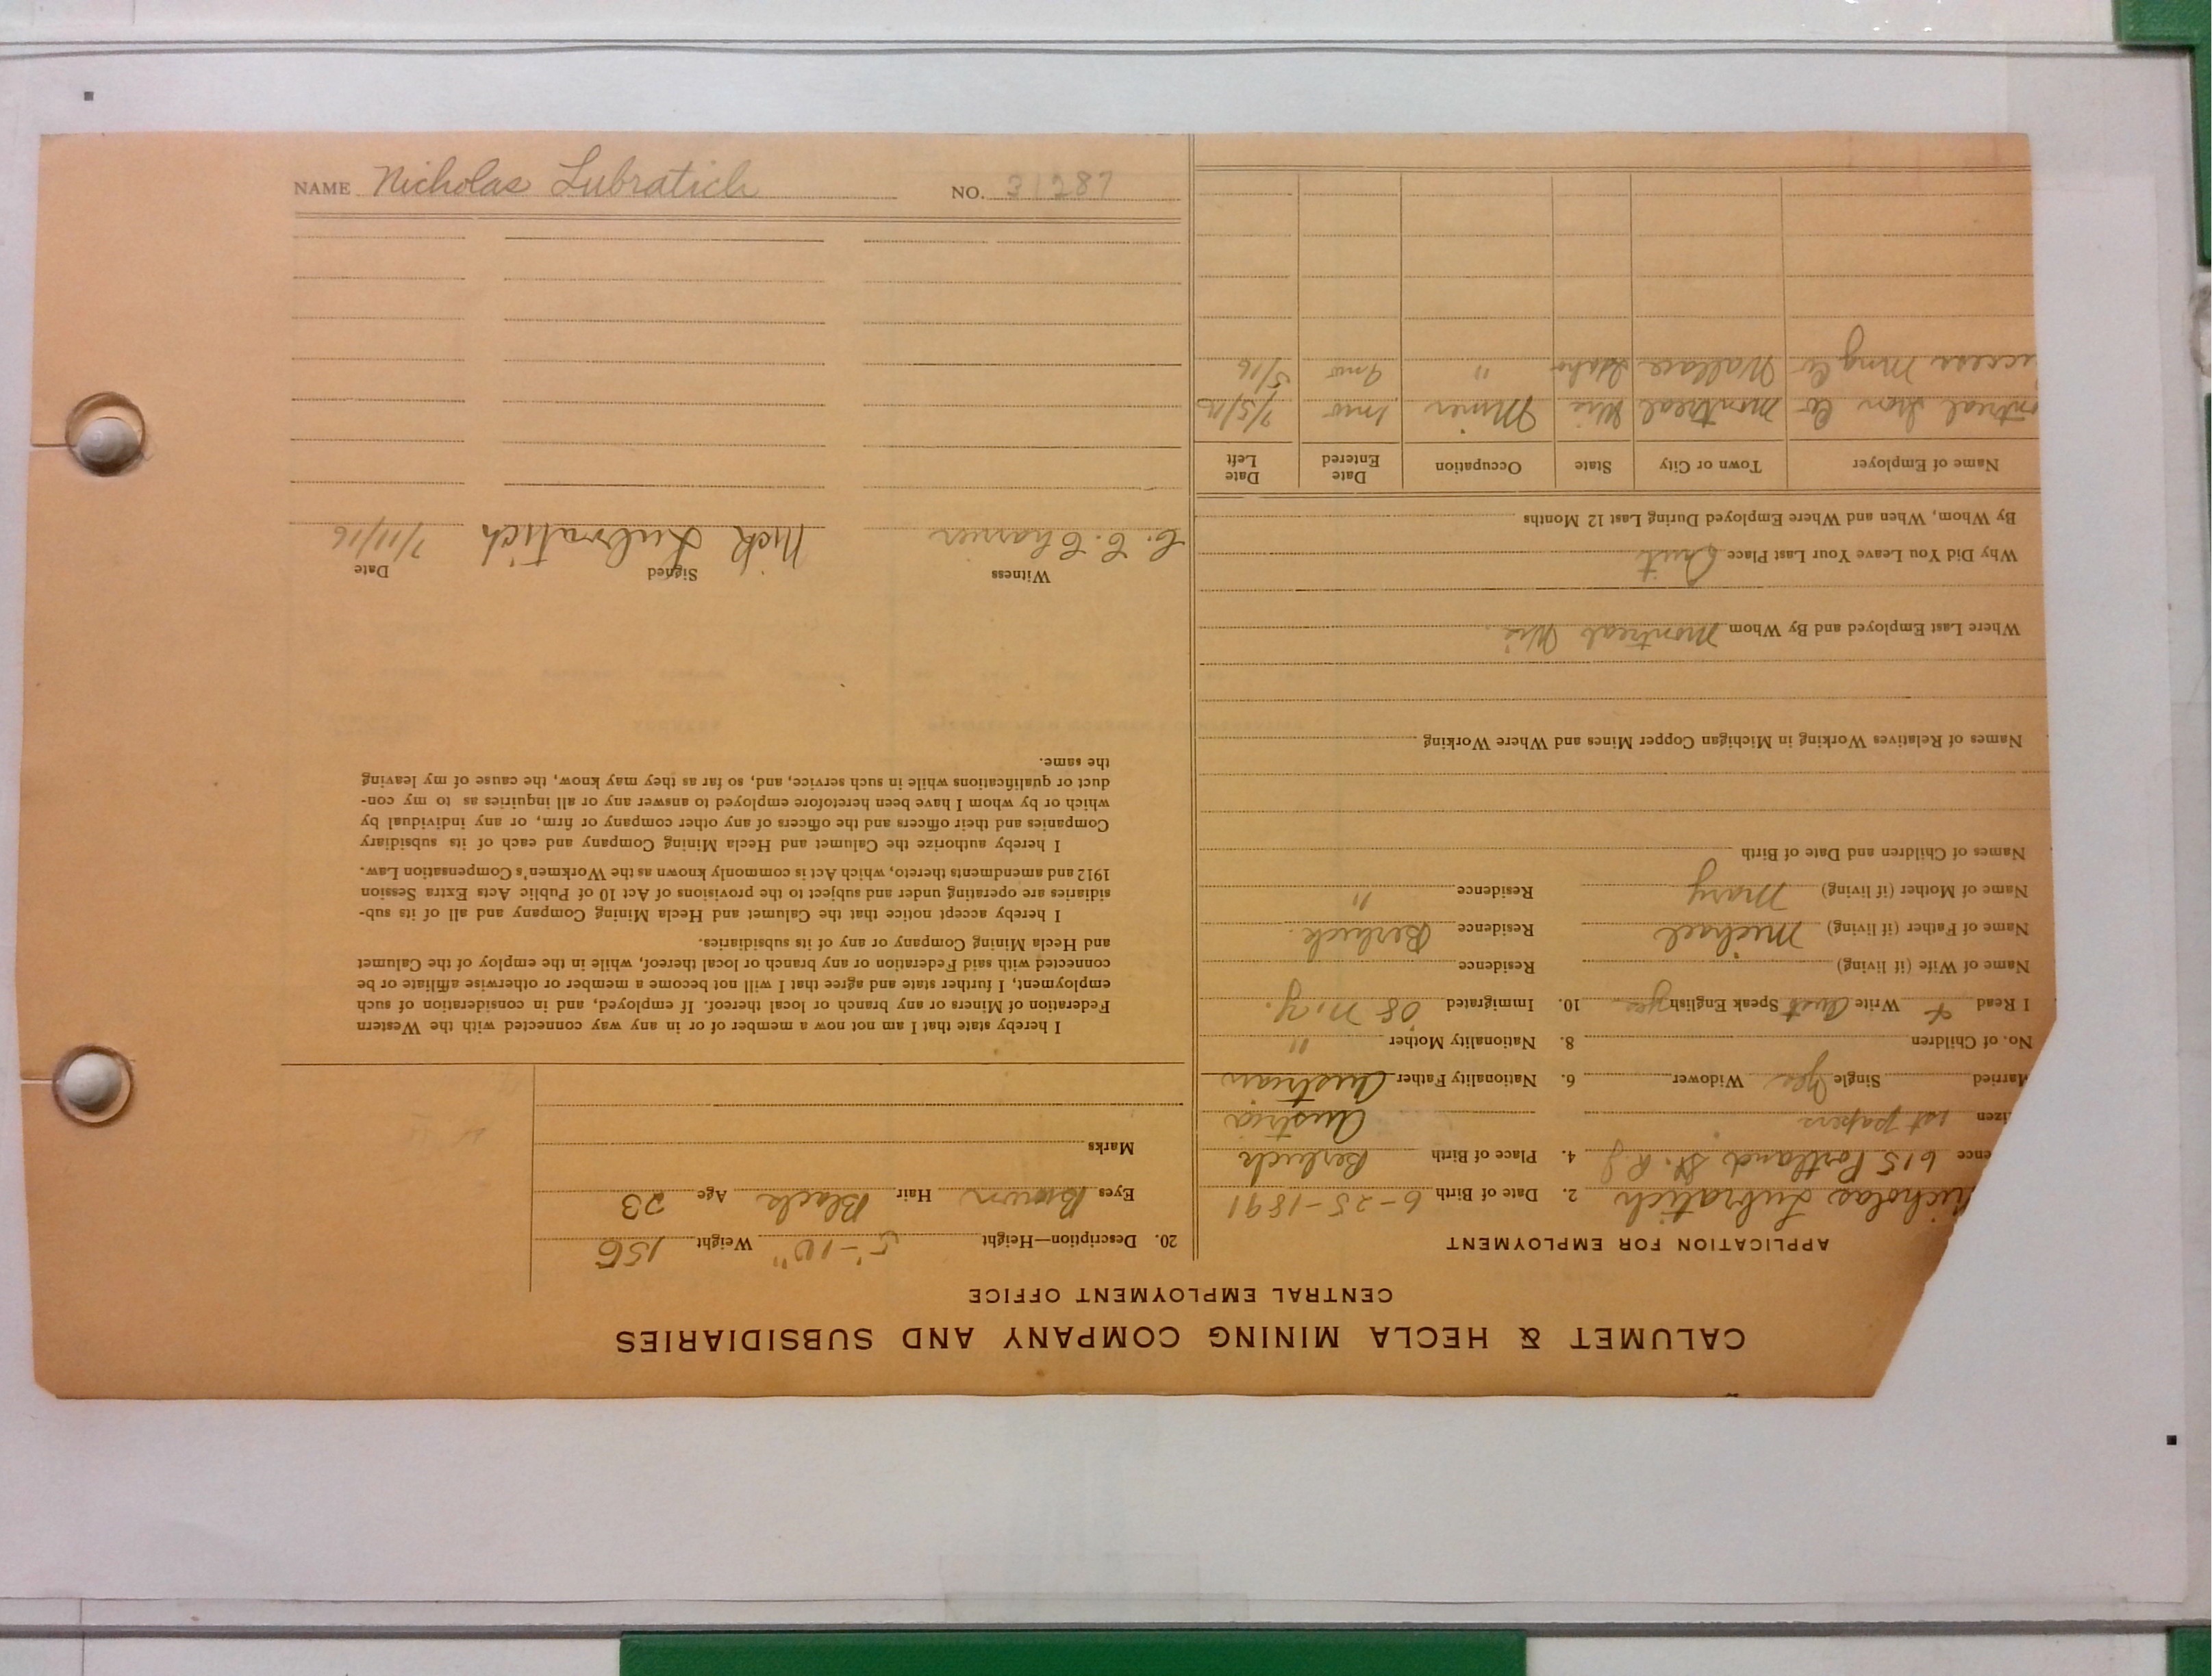 NAME Nicholas Lubratich NO. 31287
CALUMET & HECLA MINING COMPANY AND SUBSIDIARIES
CENTRAL EMPLOYMENT OFFICE
APPLICATION FOR EMPLOYMENT
Nicholas Lubratich 2. Date of Birth 6-25-1891
ence 615 Portland St. 4. Place of Birth
izen 1st papers Austria
Married Single Yes Widower 6. Nationality Father Austrian
No. of Children 8. Nationality Mother "
I Read + Write Aust Speak English yes 10. Immigrated '08 N.Y.
Name of Wife (if living) Residence
Name of Father (if living) Michael Residence
Name of Mother (if living) Mary Residence "
Names of Children and Date of Birth
Names of Relatives Working in Michigan Copper Mines and Where Working
Where Last Employed and By Whom Montreal Wis.
Why Did You Leave Your Last Place Quit
By Whom, When and Where Employed During Last 12 Months
Name of Employer Town or City State Occupation Date Entered Date Left
ntreal Iron Co Montreal Wis Miner 1mo
ccess Mng Co Wallace Idaho " 9mo 5/16
20. Description—Height 5'-10" Weight
Eyes Brown Hair Black Age 23
Marks
I hereby state that I am not now a member of or in any way connected with the Western
Federation of Miners or any branch or local thereof. If employed, and in consideration of such
employment, I further state and agree that I will not become a member or otherwise affiliate or be
connected with said Federation or any branch or local thereof, while in the employ of the Calumet
and Hecla Mining Company or any of its subsidiaries.
I hereby accept notice that the Calumet and Hecla Mining Company and all of its sub-
sidiaries are operating under and subject to the provisions of Act 10 of Public Acts Extra Session
1912 and amendments thereto, which Act is commonly known as the Workmen's Compensation Law.
I hereby authorize the Calumet and Hecla Mining Company and each of its subsidiary
Companies and their officers and the officers of any other company or firm, or any individual by
which or by whom I have been heretofore employed to answer any or all inquiries as to my con-
duct or qualifications while in such service, and, so far as they may know, the cause of my leaving
the same.
Witness Signed Date
Nick Lubratich 7/11/16